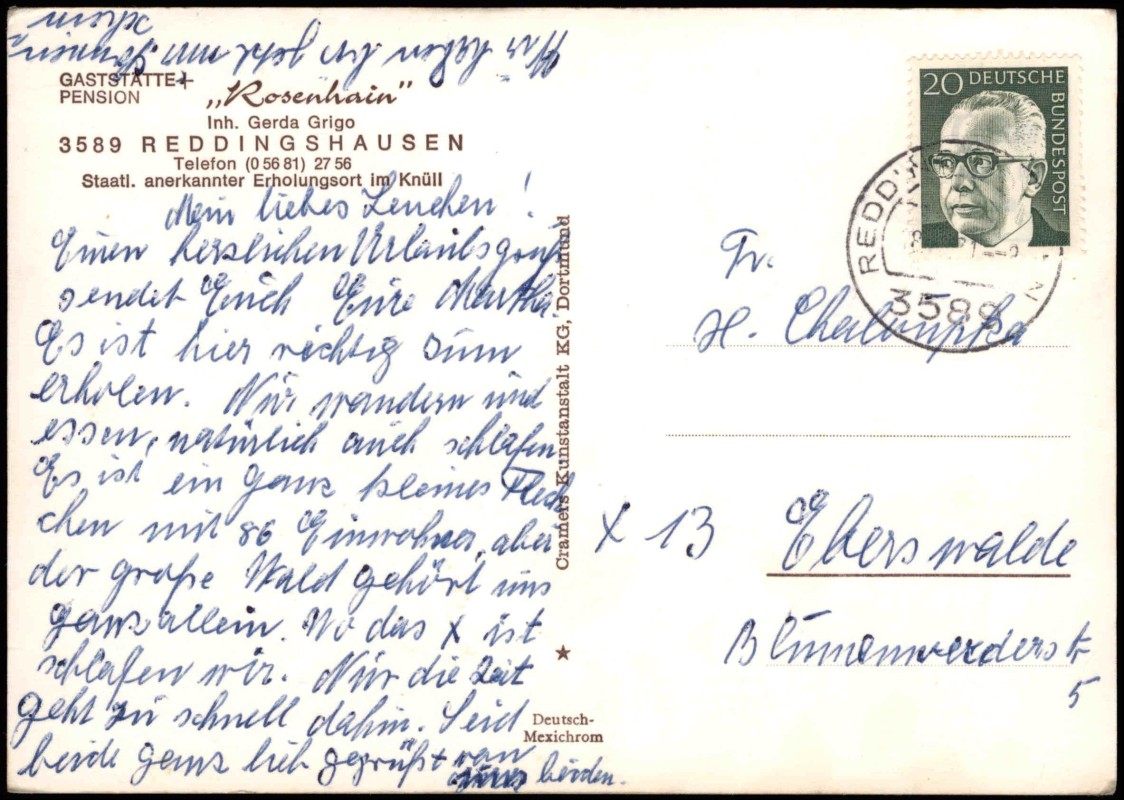 Wir haben hier jetzt nun Sonnen
schein
GASTSTÄTTE +
PENSION „Rosenhain"
Inh. Gerda Grigo
3589 REDDINGSHAUSEN
Telefon (0 56 81) 27 56
Staatl. anerkannter Erholungsort im Knüll
Mein liebes Lenchen!
Einen herzlichen Urlaubsgruß
sendet Euch Eure Martha.
Es ist hier richtig zum
erholen. Nur wandern und
essen, natürlich auch schlafen
Es ist ein ganz kleines Fleck
chen mit 86 Einwohner, aber
der große Wald gehört uns
ganz allein. Wo das x ist
schlafen wir. Nur die Zeit
geht zu schnell dahin. Seid
beide ganz lieb gegrüßt von
beiden.
Cramers Kunstanstalt KG, Dortmund
Deutsch-
Mexichrom
20 DEUTSCHE
BUNDESPOST
REDD N
3589
Fr.
H. Chaloupka
x 13 Eberswalde
Blumenwerderstr
5